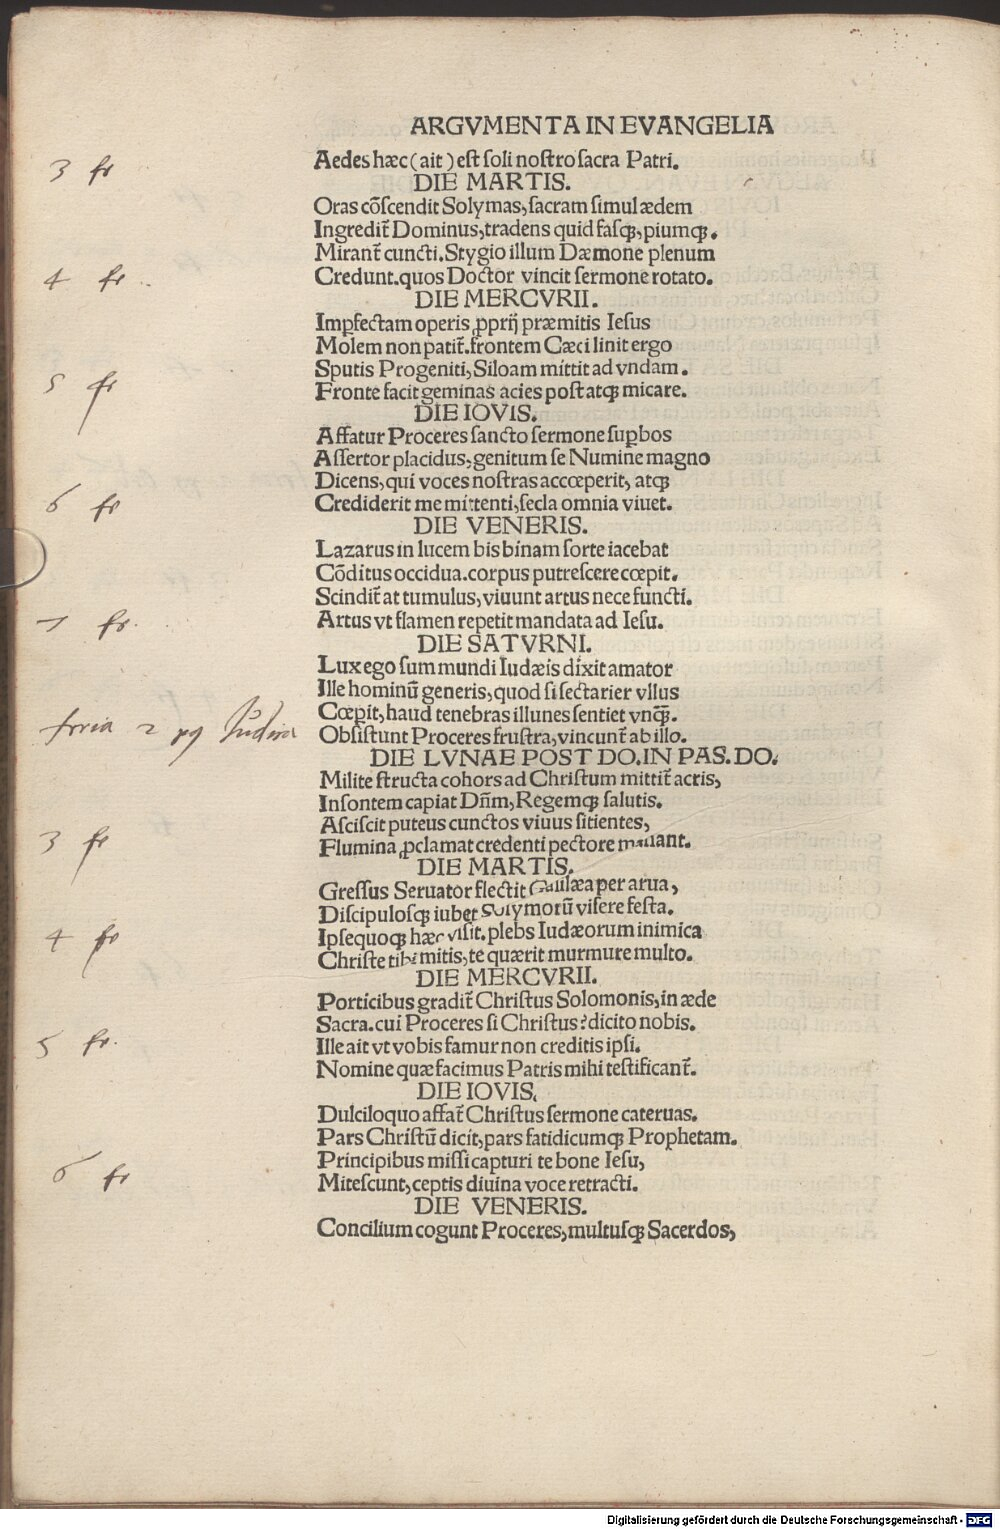 ARGVMENTA IN EVANGELIA
Aedes hæc (ait) est soli nostro sacra Patri.
3 fe
DIE MARTIS.
Oras cõscendit Solymas, sacram simul ædem
Ingredit̃ Dominus, tradens quid fasq;, piumq;.
Mirant̃ cuncti. Stygio illum Dæmone plenum
Credunt. quos Doctor vincit sermone rotato.
4 fe
DIE MERCVRII.
Imꝑfectam operis ꝓprij præmitis Iesus
Molem non patit̃. frontem Cæci linit ergo
Sputis Progeniti, Siloam mittit ad vndam.
Fronte facit geminas acies post atq; micare.
5 fe
DIE IOVIS.
Affatur Proceres sancto sermone suꝑbos
Assertor placidus, genitum se Numine magno
Dicens, qui voces nostras accœperit, atq;
Crediderit me mittenti, secla omnia viuet.
6 fe
DIE VENERIS.
Lazarus in lucem bis binam sorte iacebat
Cõditus occidua. corpus putrescere cœpit.
Scindit̃ at tumulus, viuunt artus nece functi.
Artus vt flamen repetit mandata ad Iesu.
7 fe.
DIE SATVRNI.
Lux ego sum mundi Iudæis dixit amator
Ille hominũ generis, quod si sectarier vllus
Cœꝑit, haud tenebras illunes sentiet vnq̃.
Obsistunt Proceres frustra, vincunt̃ ab illo.
feria 2 Iudica
DIE LVNAE POST DO. IN PAS. DO.
Milite structa cohors ad Christum mittit̃ acris,
Insontem capiat Dñm, Regemq; salutis.
Asciscit puteus cunctos viuus sitientes,
Flumina ꝓclamat credenti pectore manant.
3 fe
DIE MARTIS.
Gressus Seruator flectit Galilæa per arua,
Discipulosq; iubet Solymorũ visere festa.
Ipse quoq; hæc visit. plebs Iudæorum inimica
Christe tibi mitis, te quærit murmure multo.
4 fe
DIE MERCVRII.
Porticibus gradit̃ Christus Solomonis, in æde
Sacra. cui Proceres si Christus? dicito nobis.
Ille ait vt vobis famur non creditis ipsi.
Nomine quæ facimus Patris mihi testificant̃.
5 fe.
DIE IOVIS.
Dulciloquo affat̃ Christus sermone cateruas.
Pars Christũ dicit, pars fatidicumq; Prophetam.
Principibus missi capturi te bone Iesu,
Mitescunt, ceptis diuina voce retracti.
6 fe
DIE VENERIS.
Concilium cogunt Proceres, multusq; Sacerdos,
Digitalisierung gefördert durch die Deutsche Forschungsgemeinschaft - DFG